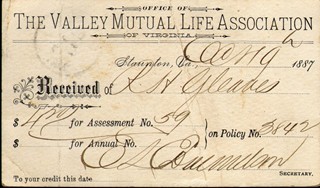 OFFICE OF
THE VALLEY MUTUAL LIFE ASSOCIATION
OF VIRGINIA.
Staunton, Va., 1887
Received of Gleaves
$ 4 for Assessment No. 59
on Policy No. 3842
$ for Annual No.
SECRETARY.
To your credit this date